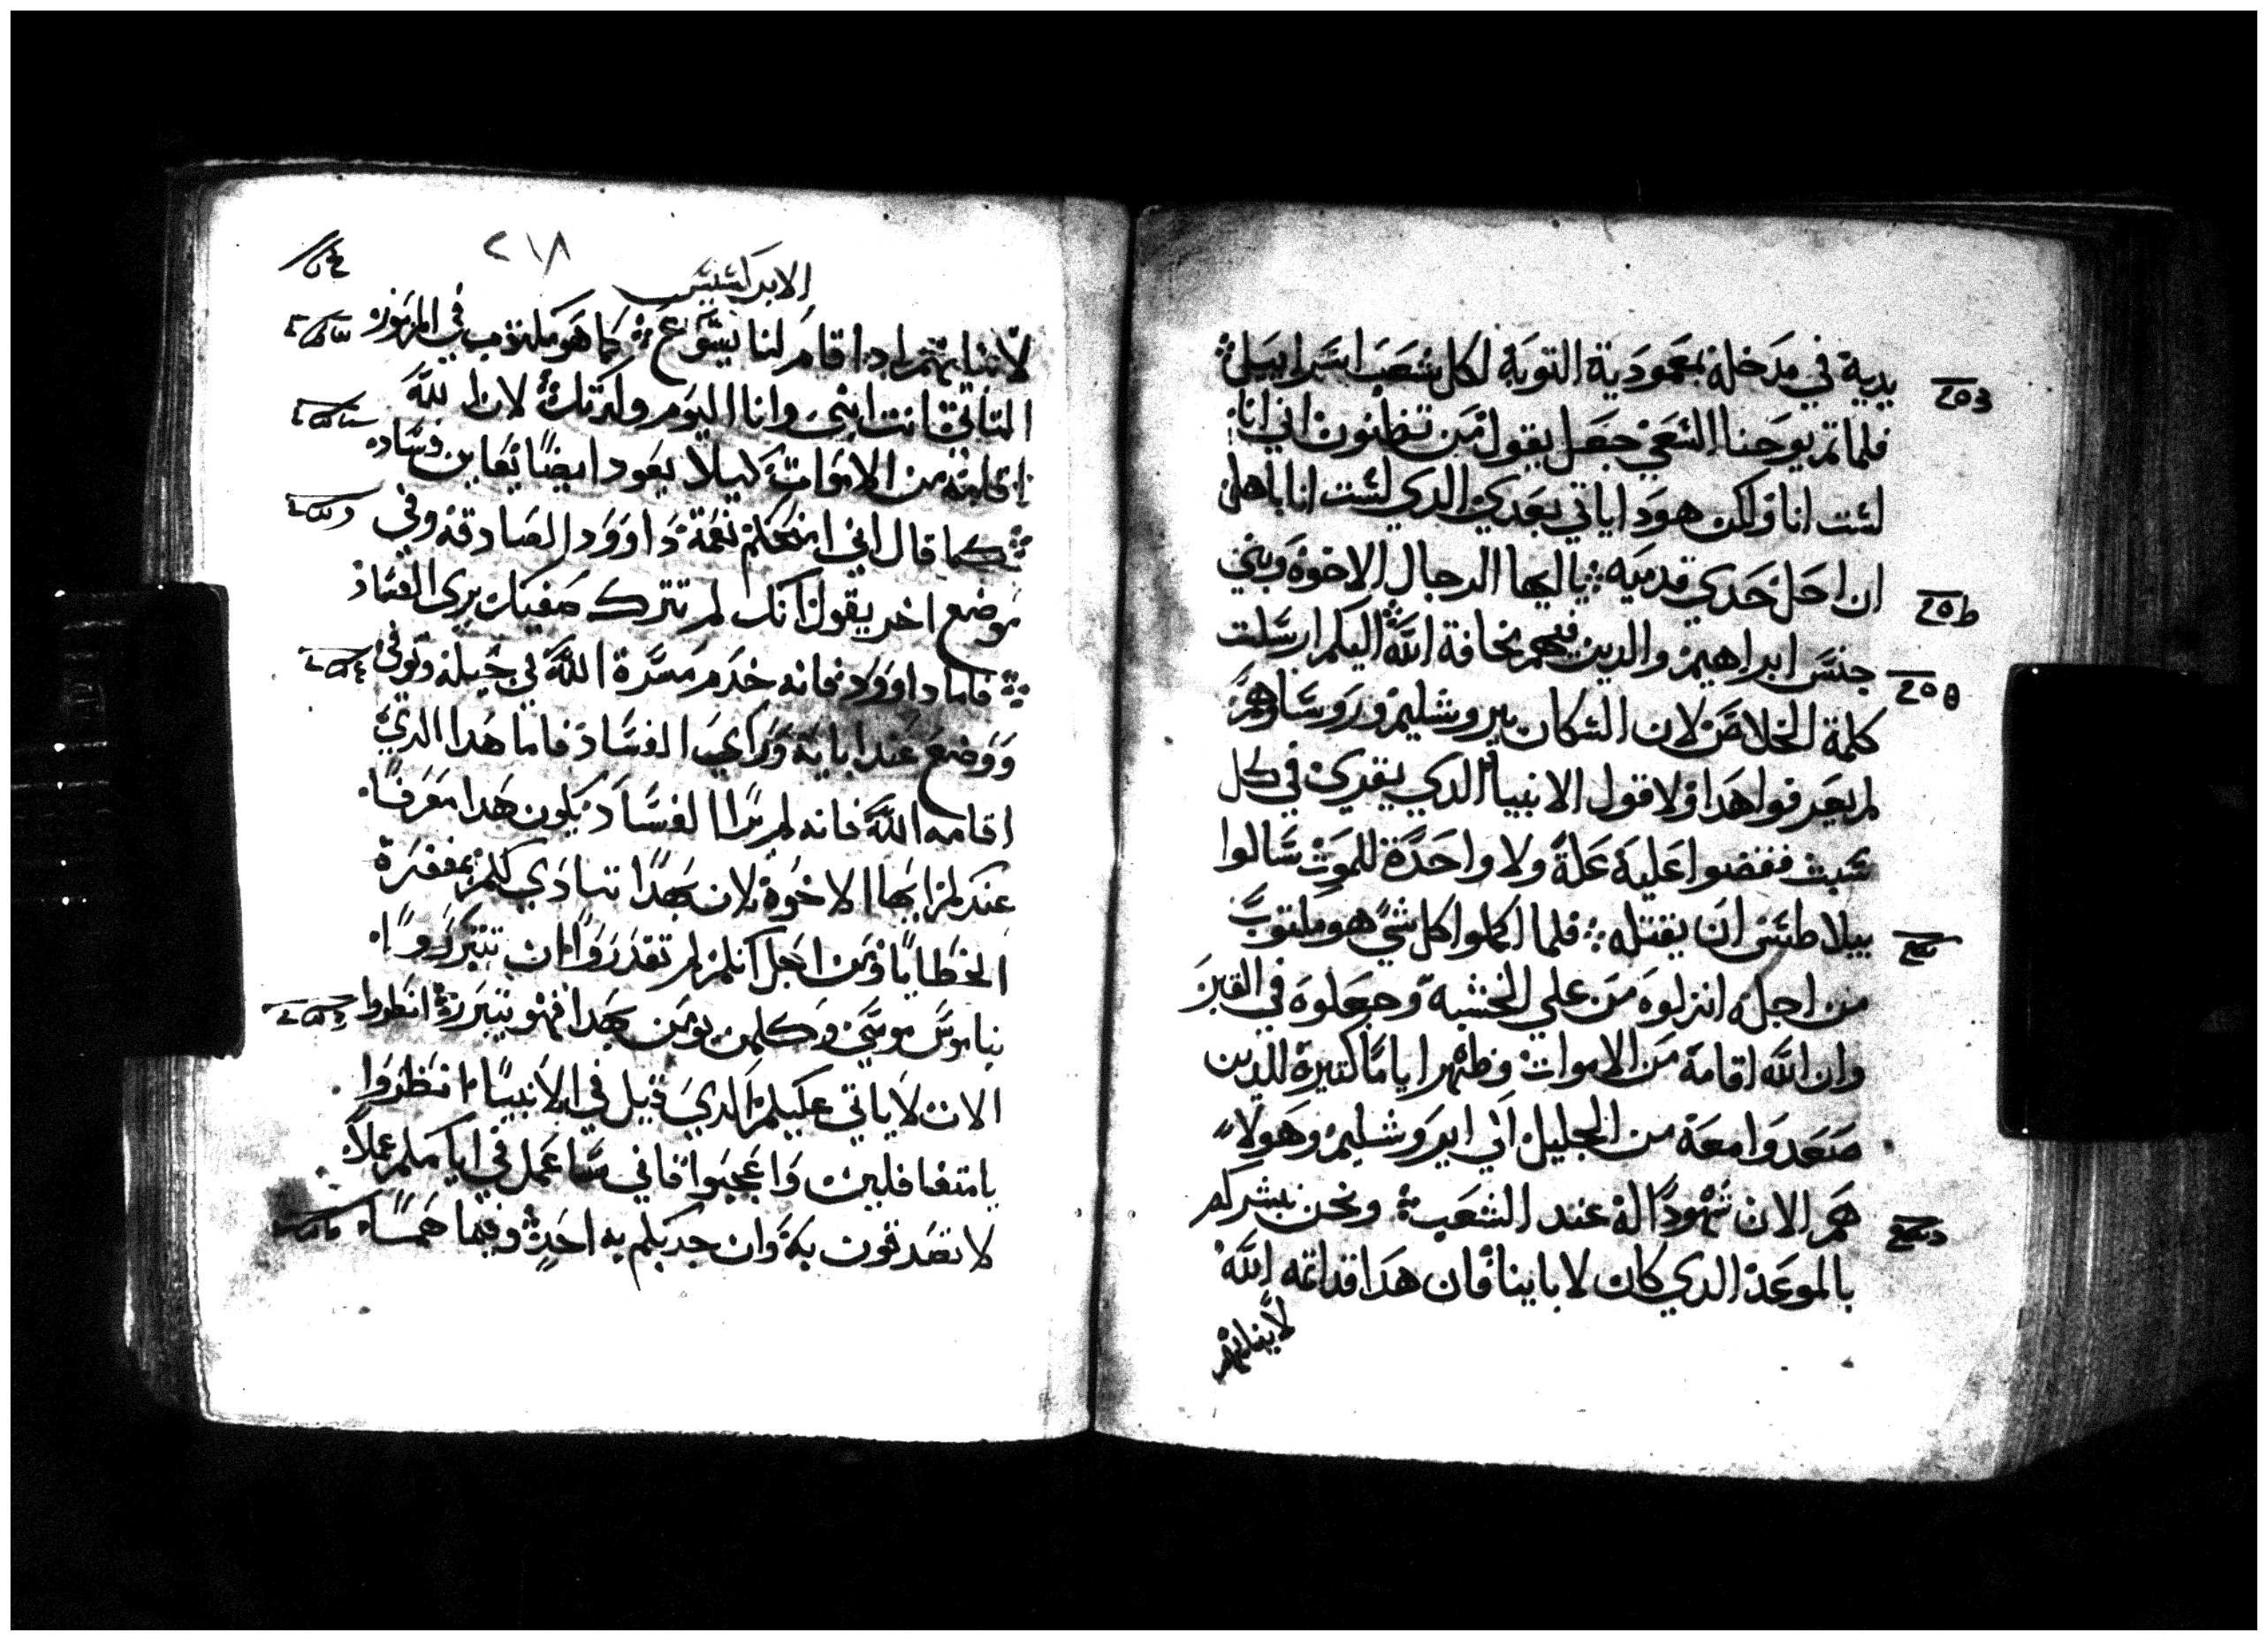 يديه في مدخله بمعمودية التوبة لكل شعب اسراييل
فلما تم يوحنا السعي جعل يقول من تظنون اني انا
لست انا ولكن هودا ياتي بعدي الدي لست انا باهل
ان احل حدي قدميه يا ايها الرجال الاخوة وبني
جنس ابراهيم والدين فيهم مخافة الله اليكم ارسلت
كلمة الخلاص لان السكان بيروشليم وروساوهم
لم يعرفوا هدا ولا قول الانبيا الدي يقري في كل
سبت فقضوا عليه علة ولا واحدة للموت سالوا
بيلاطس ان يقتله فلما اكملوا كل شي هو مكتوب
من اجله انزلوه من علي الخشبة وجعلوه في القبر
وان الله اقامة من الاموات وظهر اياما كتيرة للدين
صعدوا معة من الجليل الي ايروشليم وهولا
هم الان شهودا له عند الشعب ونحن نبشركم
بالموعد الدي كان لاباينا فان هدا قد اتمه الله
لابنايهم
٢١٨
الابركسيس
لابنايهم اد اقام لنا يسوع كما هو مكتوب في المزمور
التاني انت ابني وانا اليوم ولدتك لان الله
اقامه من الاموات كيلا يعود ايضا يعاين فساد
كما قال اني امنحكم نعمة داوود الصادقه وفي
موضع اخر يقول انك لم تترك صفيك يري الفساد
فاما داوود فانه خدم مسرة الله في جيله وتوفي
ووضع عند ابايه وراي الفساد فاما هدا الدي
اقامه الله فانه لم يرا الفساد يكون هدا معرفا
عندكم ايها الاخوة لان بهدا تنادي لكم بمغفرة
الخطايا ومن اجل انكم لم تقدروا ان تتبرروا
بناموس موسي وكلمن يومن بهدا فهو يتبرر انظروا
الان لا ياتي عليكم الدي قيل في الانبيا انظروا
يا متغافلين واعجبوا فاني ساعمل في ايامكم عملا
لا تصدقون به وان خبركم به احد وفيما هما